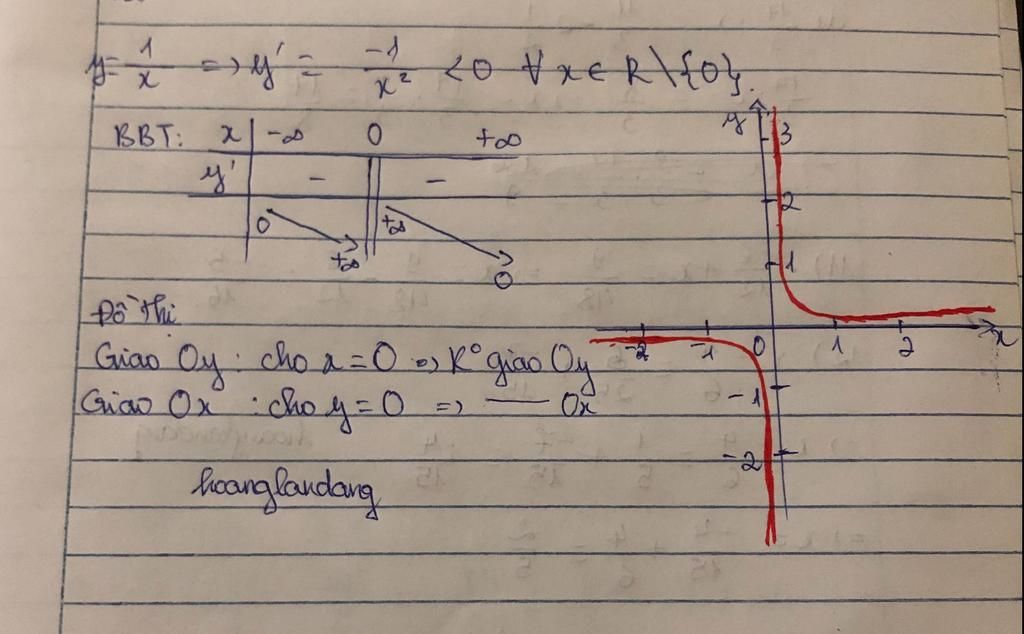 y = 1/x => y' = -1/x² < 0 ∀ x ∈ R \ {0}.
BBT: x | -∞ 0 +∞
y' | - || -
0 +∞ || +∞ 0
Đồ thị
Giao Oy : cho x = 0 => K° giao Oy
Giao Ox : cho y = 0 => — Ox
hoanglandang
y
3
2
1
-2 -1 0 1 2 x
-1
-2